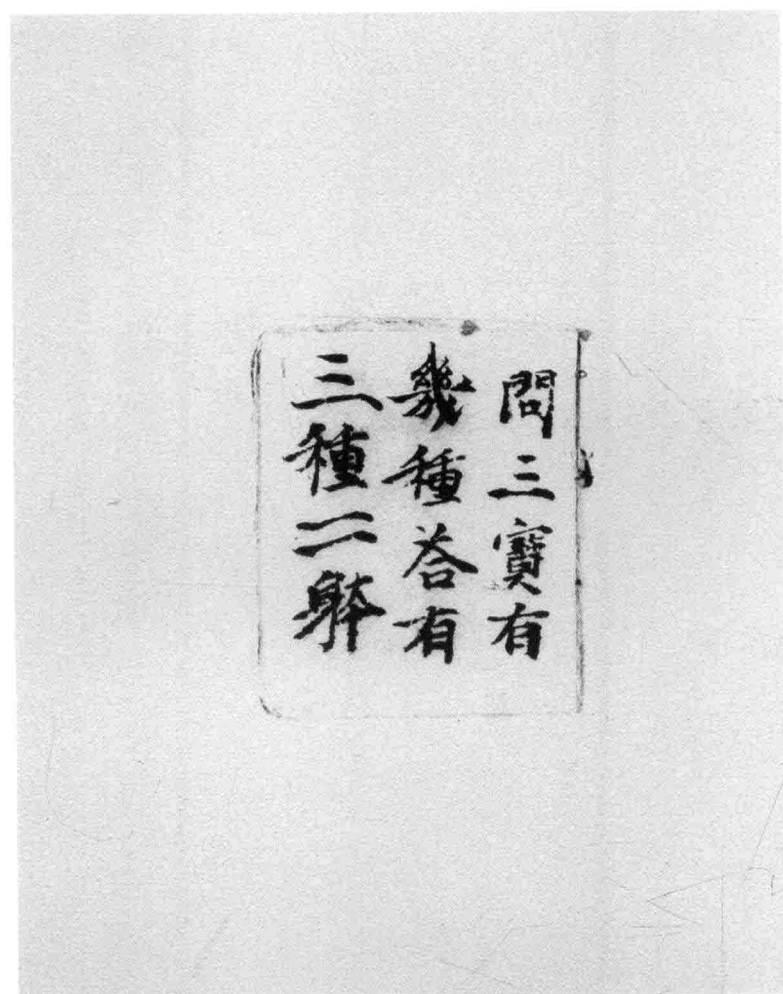 問三寶有
幾種荅有
三種一一躰